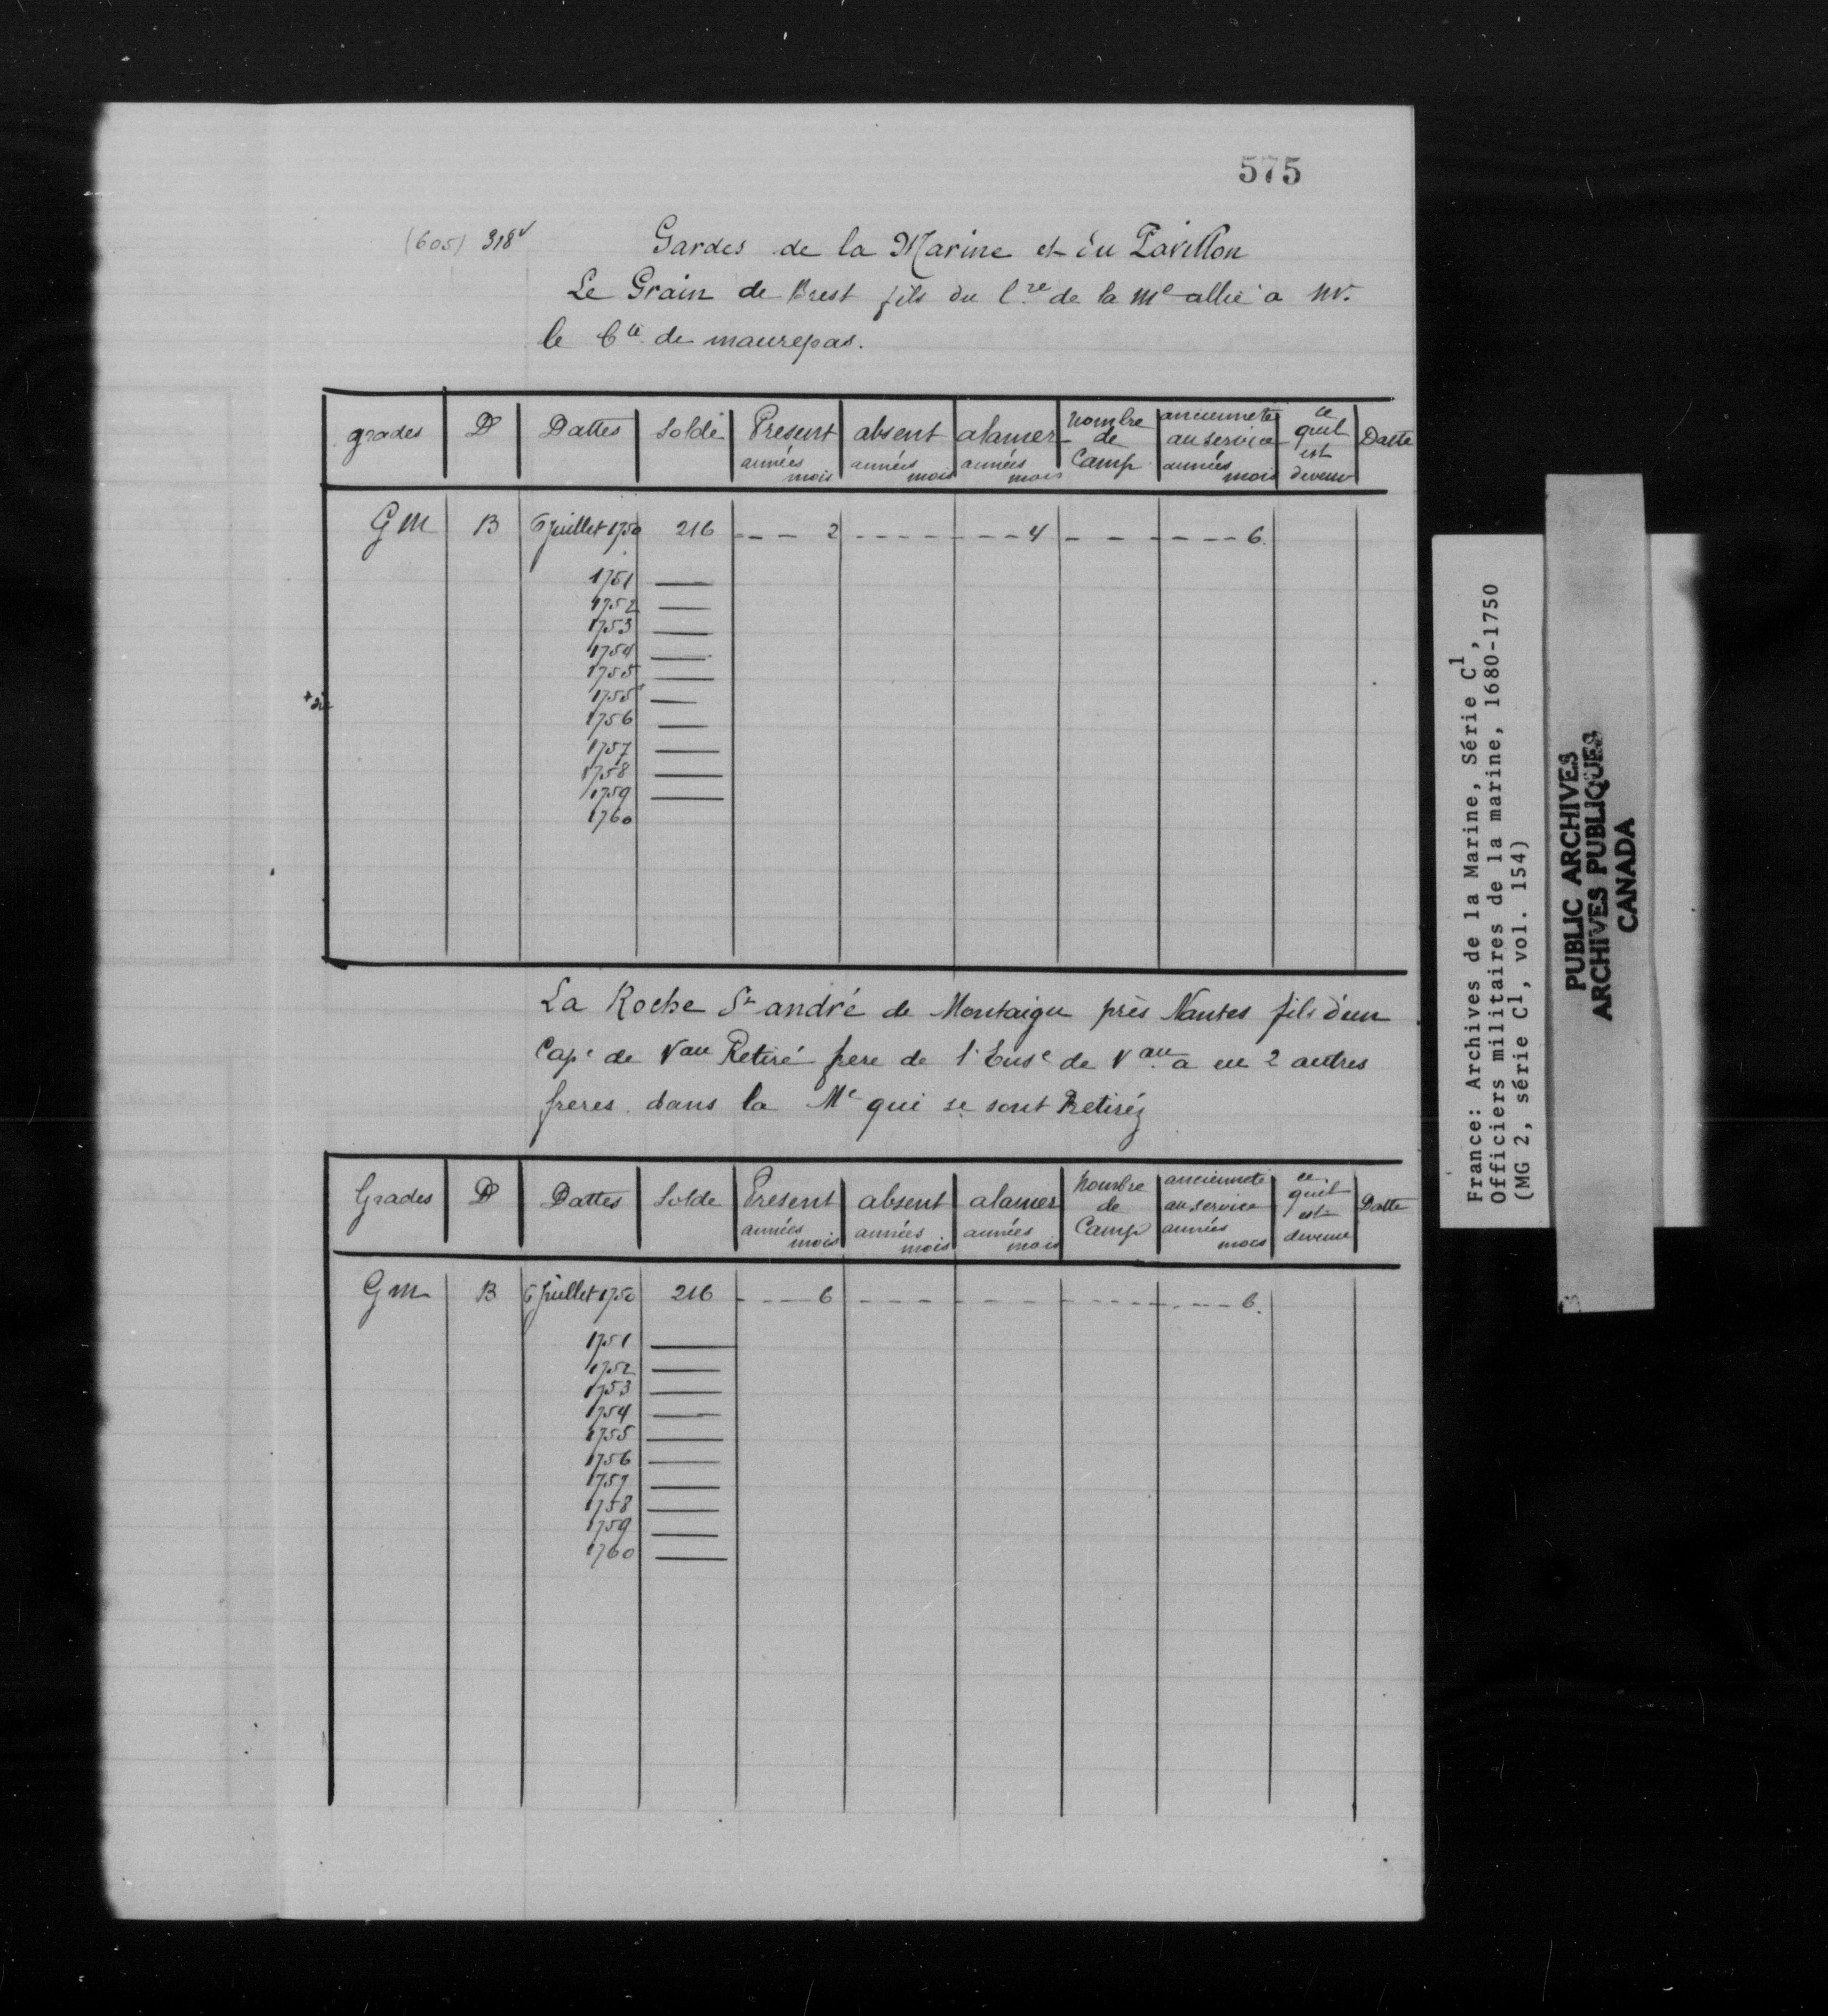 575
(605) 318v
Gardes de la Marine et du Pavillon
Le Grain de Brest fils du C.re de la Me allié a Mr.
le Cte de maurepas.
grades | D | Dattes | Solde | Present années mois | absent années mois | alamer années mois | Nombre de Camp | ancienneté au service années mois | ce quil est devenu | Datte
G M | B | 6 Juillet 1750 | 216 | - - - 2 | - - - - | - - - 4 | - - | - - - - 6.
1751 ——
1752 ——
1753 ——
1754 ——
1755 ——
1755 ——
1756 ——
1757 ——
1758 ——
1759 ——
1760
La Roche St andré de Montaigu près Nantes fils d'un
Cape de Vau Retiré frere de l'Ense de Vau a eu 2 autres
freres dans la Me qui se sont Retiréz
Grades | D | Dattes | Solde | Present années mois | absent années mois | alamer années mois | Nombre de Camp | ancienneté au service années mois | ce quil est devenu | Datte
G m | B | 6 Juillet 1750 | 216 | - - - 6 | - - - - | - - - | - - - - | - - - - 6.
1751 ——
1752 ——
1753 ——
1754 ——
1755 ——
1756 ——
1757 ——
1758 ——
1759 ——
1760 ——
France: Archives de la Marine, Série C1,
Officiers militaires de la marine, 1680-1750
(MG 2, série C1, vol. 154)
PUBLIC ARCHIVES
ARCHIVES PUBLIQUES
CANADA